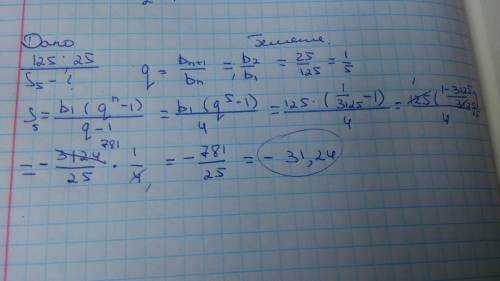 Дано Решение
125; 25
S₅ - ? q = b_{n+1}/b_n = b₂/b₁ = 25/125 = 1/5
S₅ = b₁(qⁿ-1)/(q-1) = b₁(q⁵-1)/4 = 125·(1/3125 -1)/4 = 125((1-3125)/3125)/4
= -3124/25 · 1/4 = -781/25 = -31,24
781